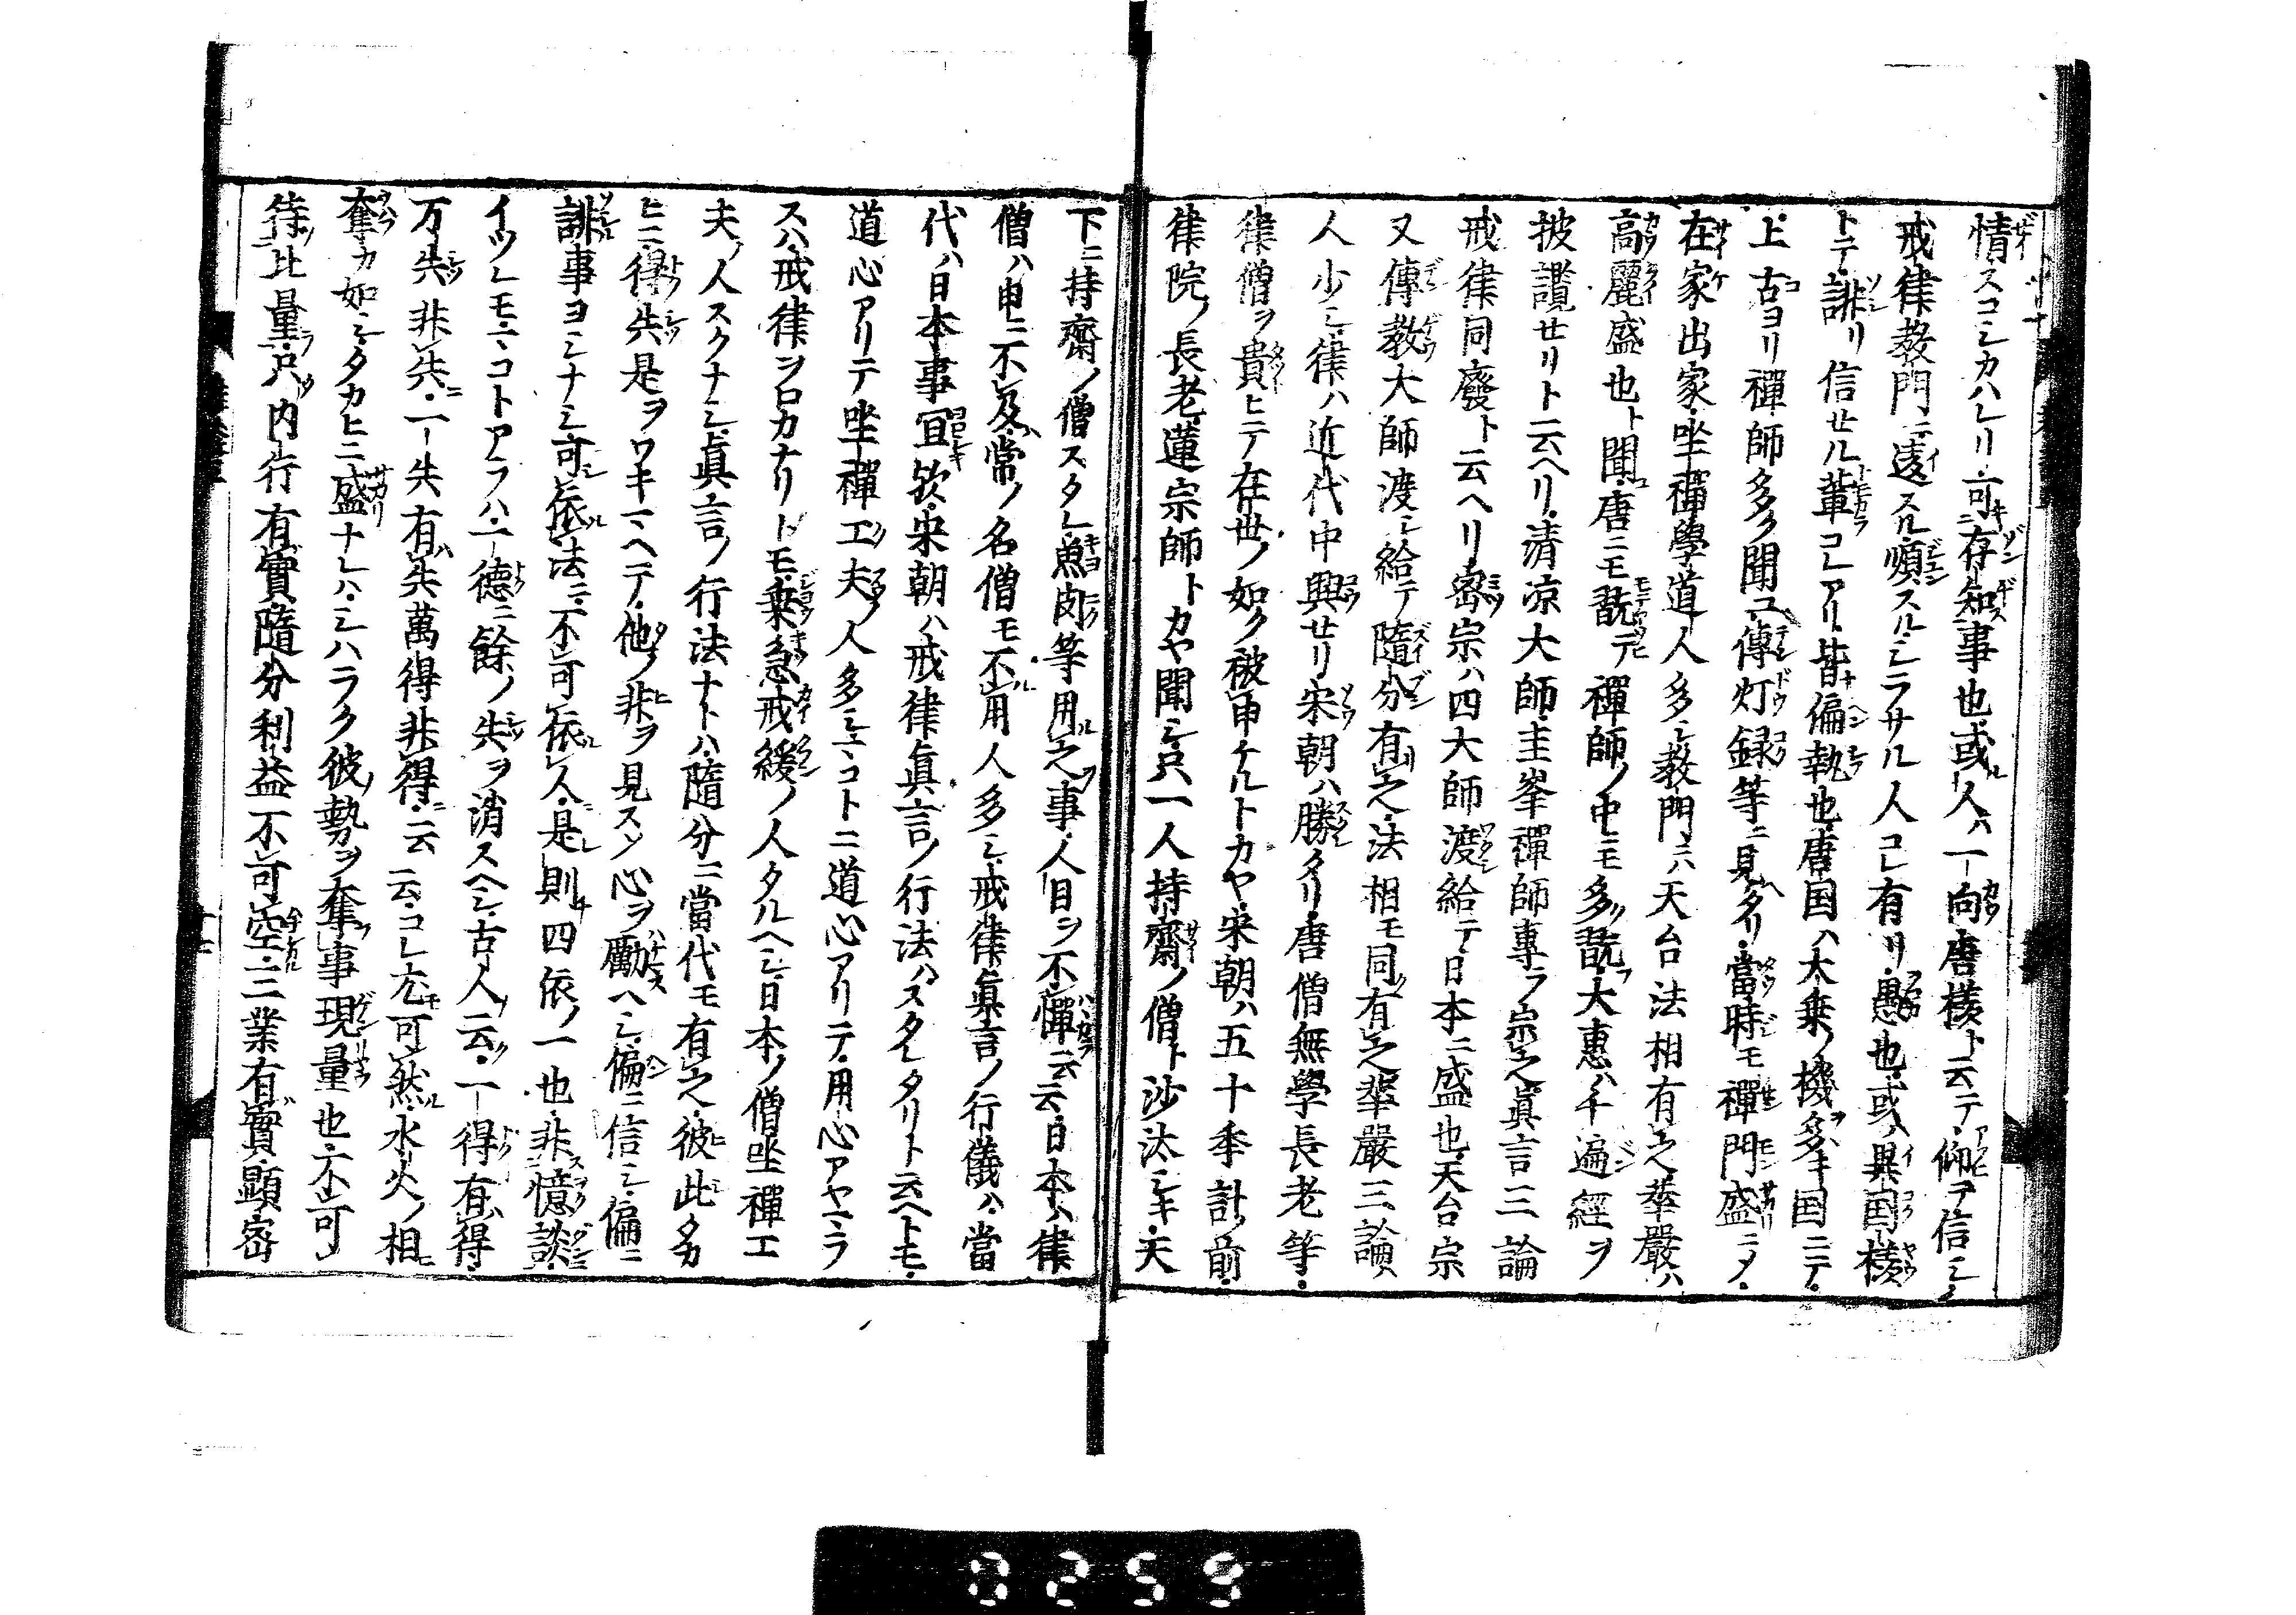 情スコシカハレリ可存知事也或人ハ一向唐樣ト云テ仰テ信シ
戒律教門ニ違スル順スルシラサル人コレ有リ愚也或異国樣
トテ誹リ信セル輩コレアリ皆偏執也唐国ハ大乗ノ機多キ国ニテ
上古ヨリ禪師多ク聞ユ傳灯録等ニ見タリ當時モ禪門盛ニメ
在家出家坐禪學道人多シ教門ハ天台法相有之華嚴ハ
高麗盛也ト聞唐ニモ翫テ禪師ノ中ニモ多翫大惠ハ千遍經ヲ
披讃セリト云ヘリ清凉大師圭峯禪師專ラ宗之眞言三論
戒律同廢ト云ヘリ密宗ハ四大師渡給テ日本ニ盛也天台宗
又傳教大師渡シ給テ隨分有之法相モ同有之華嚴三論
人少シ律ハ近代中興セリ宋朝ハ勝タリ唐僧無學長老等
律僧ヲ貴ヒテ在世ノ如ク被申ケルトカヤ宋朝ハ五十季計前
律院ノ長老蓮宗師トカヤ聞シ只一人持齋ノ僧ト沙汰シキ天
下ニ持齋ノ僧スタレ魚肉等用之事人目ヲ不憚云云日本ハ律
僧ハ申ニ不及常ノ名僧モ不用人多シ戒律眞言ノ行儀ハ當
代ハ日本事宜歟宋朝ハ戒律眞言ノ行法ハスタレタリト云ヘトモ
道心アリテ坐禪工夫ノ人多シマコトニ道心アリテ用心アヤマラ
スハ戒律ヲロカナリトモ乗急戒緩ノ人タルヘシ日本ノ僧坐禪工
夫ノ人スクナシ眞言ノ行法ナトハ隨分ニ當代モ有之彼此タカ
ヒニ得失是ヲワキマヘテ他ノ非ヲ見スシ心ヲ勵ヘシ偏ニ信シ偏ニ
誹事ヨシナシ可依法不可依人是則四依ノ一也非憶談
イツレモマコトアラハ一德ニ餘ノ失ヲ消スヘシ古人云一得有得
万失非失一失有失萬得非得云云コレ尤可然水火ノ相
奪カ如シタカヒニ盛ナレハシハラク彼勢ヲ奪事現量也不可
待比量只内行有實隨分利益不可空三業有實顯密